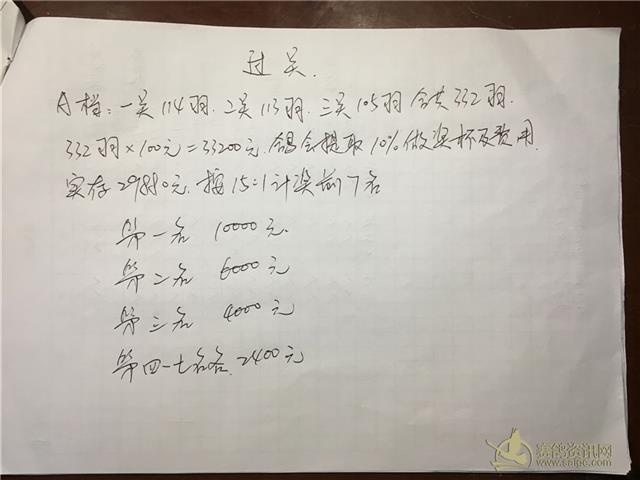 过关.
A档:一关114羽.二关113羽.三关105羽合共332羽.
332羽×100元=33200元.鸽会提取10%做奖杯及费用.
实存29880元.按15:1计奖前7名
第一名 10000元.
第二名 6000元
第三名 4000元
第四一七名各.2400元
赛鸽资讯网
www.saige.com